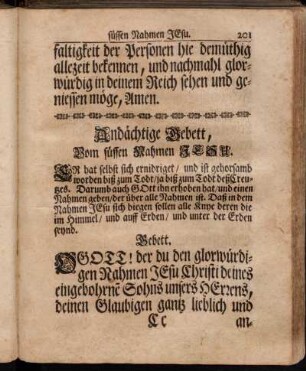 süssen Nahmen JEsu. 201
faltigkeit der Personen hie demüthig
allezeit bekennen, und nachmahl glor-
würdig in deinem Reich sehen und ge-
niessen möge, Amen.
Andächtige Gebett,
Vom süssen Nahmen JESU.
ER hat selbst sich ernidriget/ und ist gehorsamb
worden biß zum Todt/ ja biß zum Todt deß Creu-
tzes. Darumb auch GOtt ihn erhoben hat, und einen
Nahmen geben/ der über alle Nahmen ist. Daß in dem
Nahmen JEsu sich biegen sollen alle Knye deren die
im Himmel/ und auff Erden/ und unter der Erden
seynd.
Gebett.
OGOTT! der du den glorwürdi-
gen Nahmen JEsu Christi deines
eingebohrnē Sohns unsers HErrens,
deinen Glaubigen gantz lieblich und
Cc an-